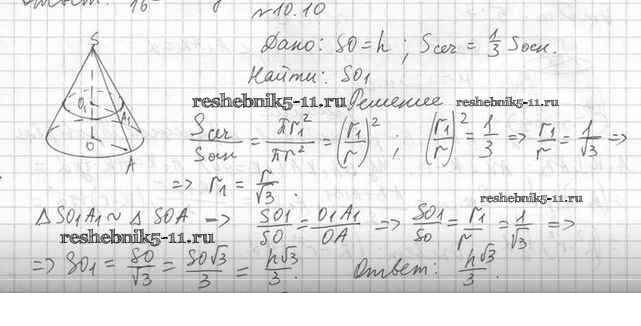 №10.10
Дано: SO = h ; Sсеч = 1/3 Sосн.
Найти: SO₁
Решение
reshebnik5-11.ru
reshebnik5-11.ru
S
O₁ A₁
O
A
Sсеч/Sосн = πr₁²/πr² = (r₁/r)² ; (r₁/r)² = 1/3 => r₁/r = 1/√3 =>
=> r₁ = r/√3 .
reshebnik5-11.ru
Δ SO₁A₁ ~ Δ SOA => SO₁/SO = O₁A₁/OA => SO₁/SO = r₁/r = 1/√3 =>
reshebnik5-11.ru
=> SO₁ = SO/√3 = SO√3/3 = h√3/3. Ответ: h√3/3.